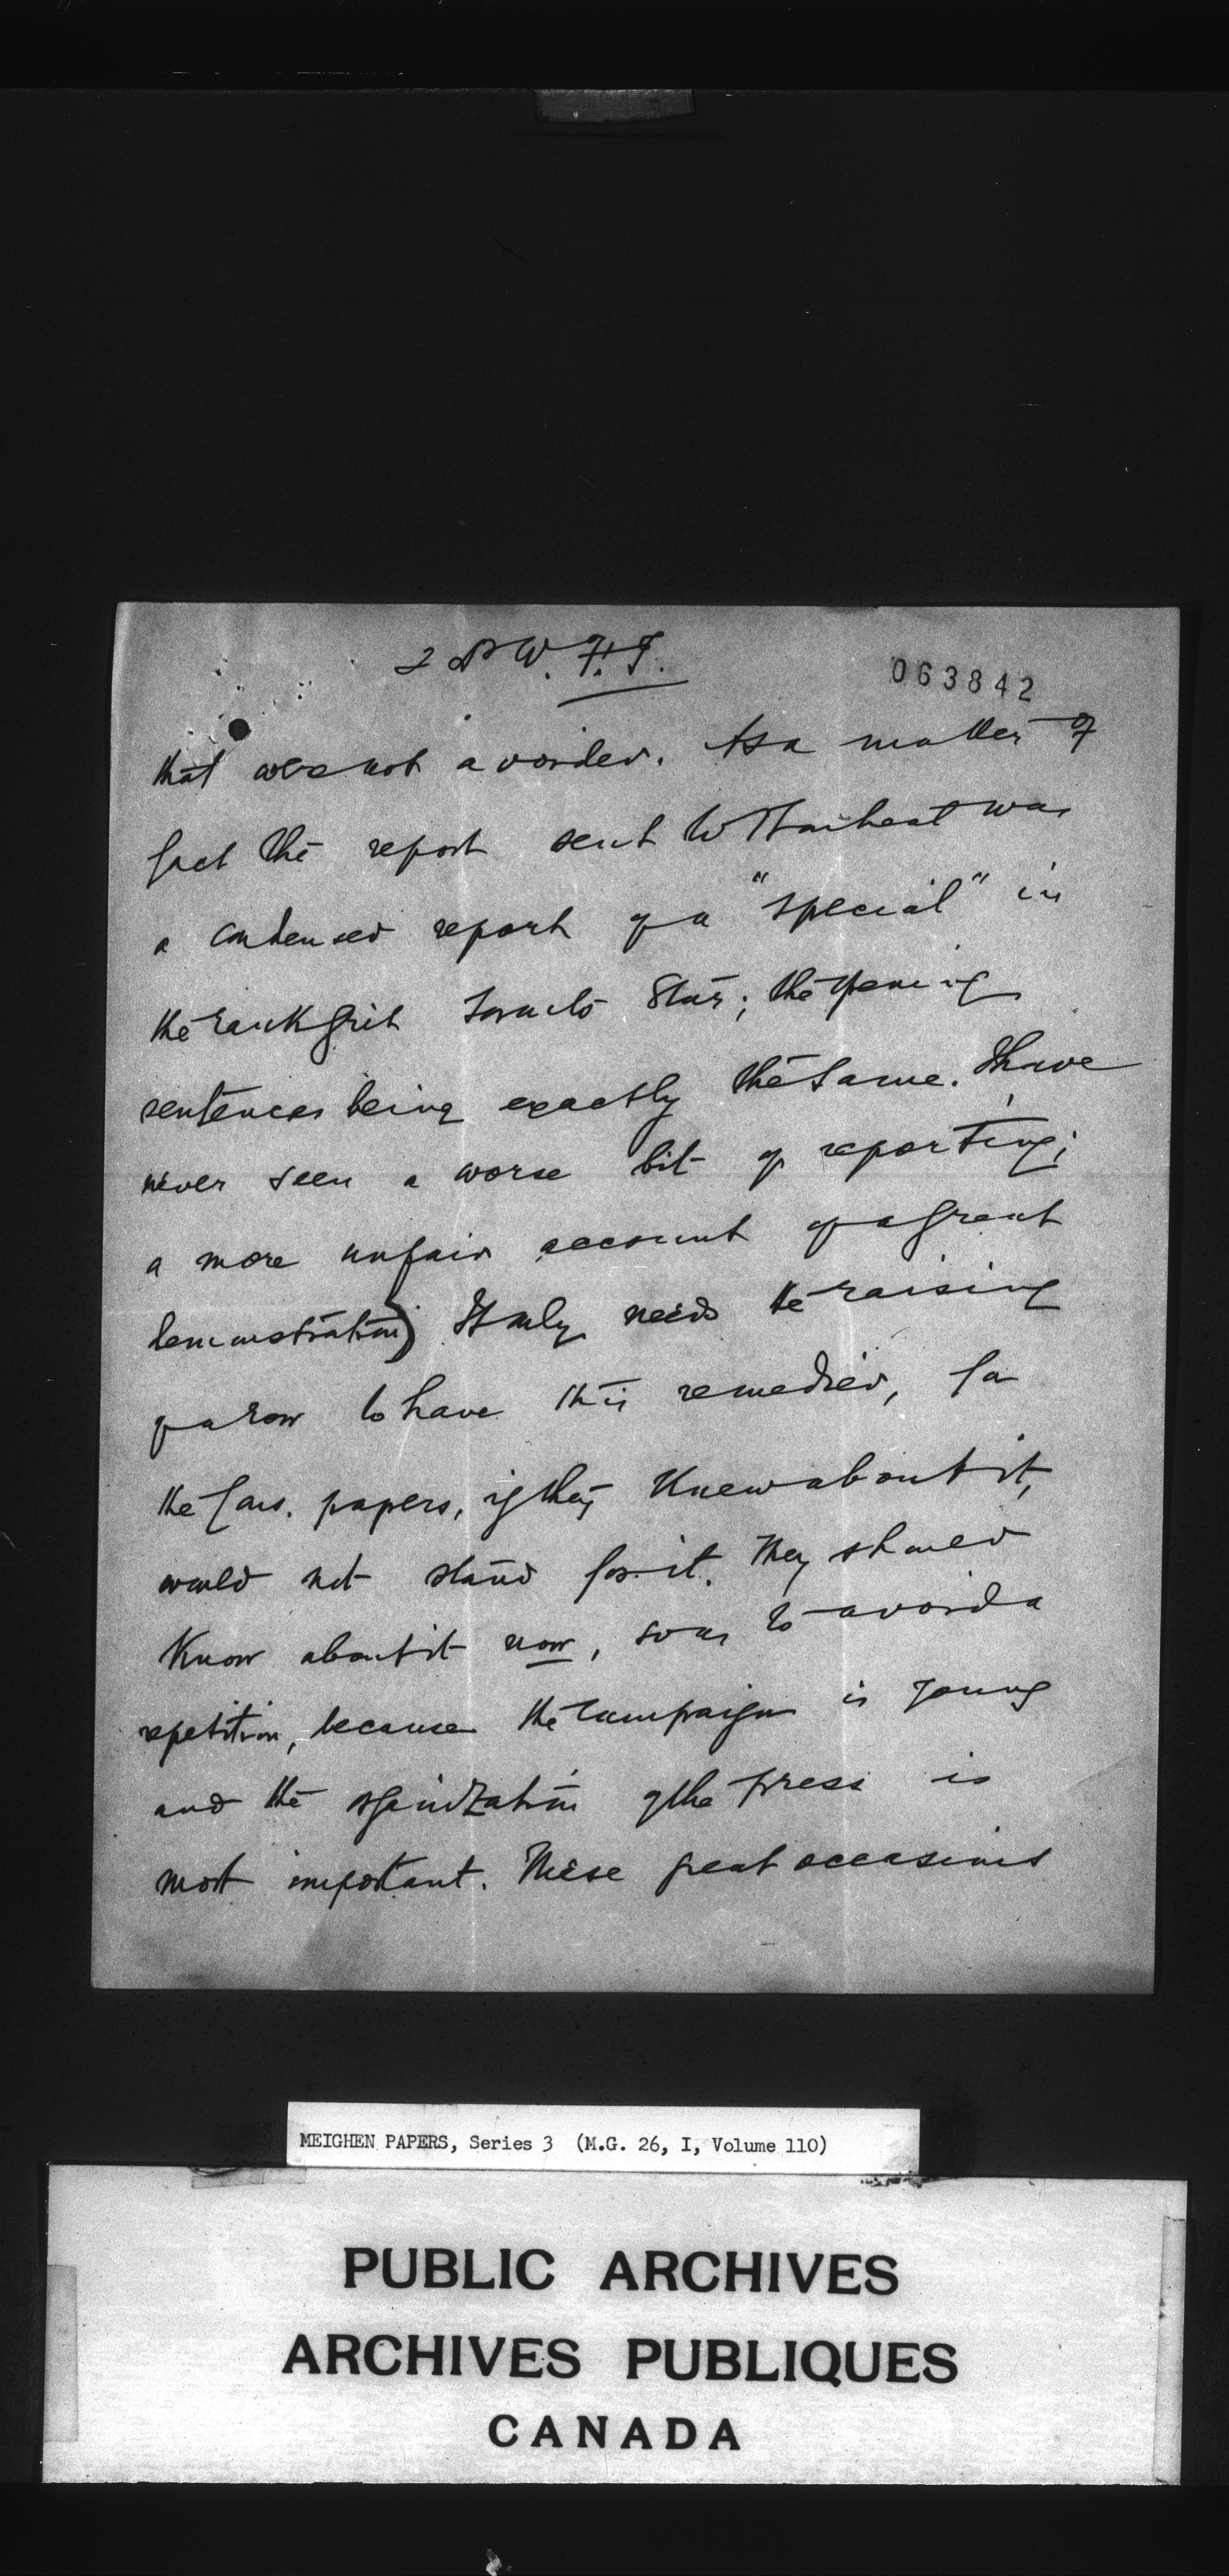 2 W. F. J.
063842
that was not avoided. As a matter of
fact the report sent to Montreal was
a condensed report of a "special" in
the rank Grit Toronto Star; the opening
sentences being exactly the same. I have
never seen a worse bit of reporting;
a more unfair account of a great
demonstration) It only needs the raising
of a row to have this remedied, for
the Cons. papers, if they knew about it,
would not stand for it. They should
know about it now, so as to avoid a
repetition, because the campaign is young
and the organization of the press is
most important. These great occasions
MEIGHEN PAPERS, Series 3 (M.G. 26, I, Volume 110)
PUBLIC ARCHIVES
ARCHIVES PUBLIQUES
CANADA